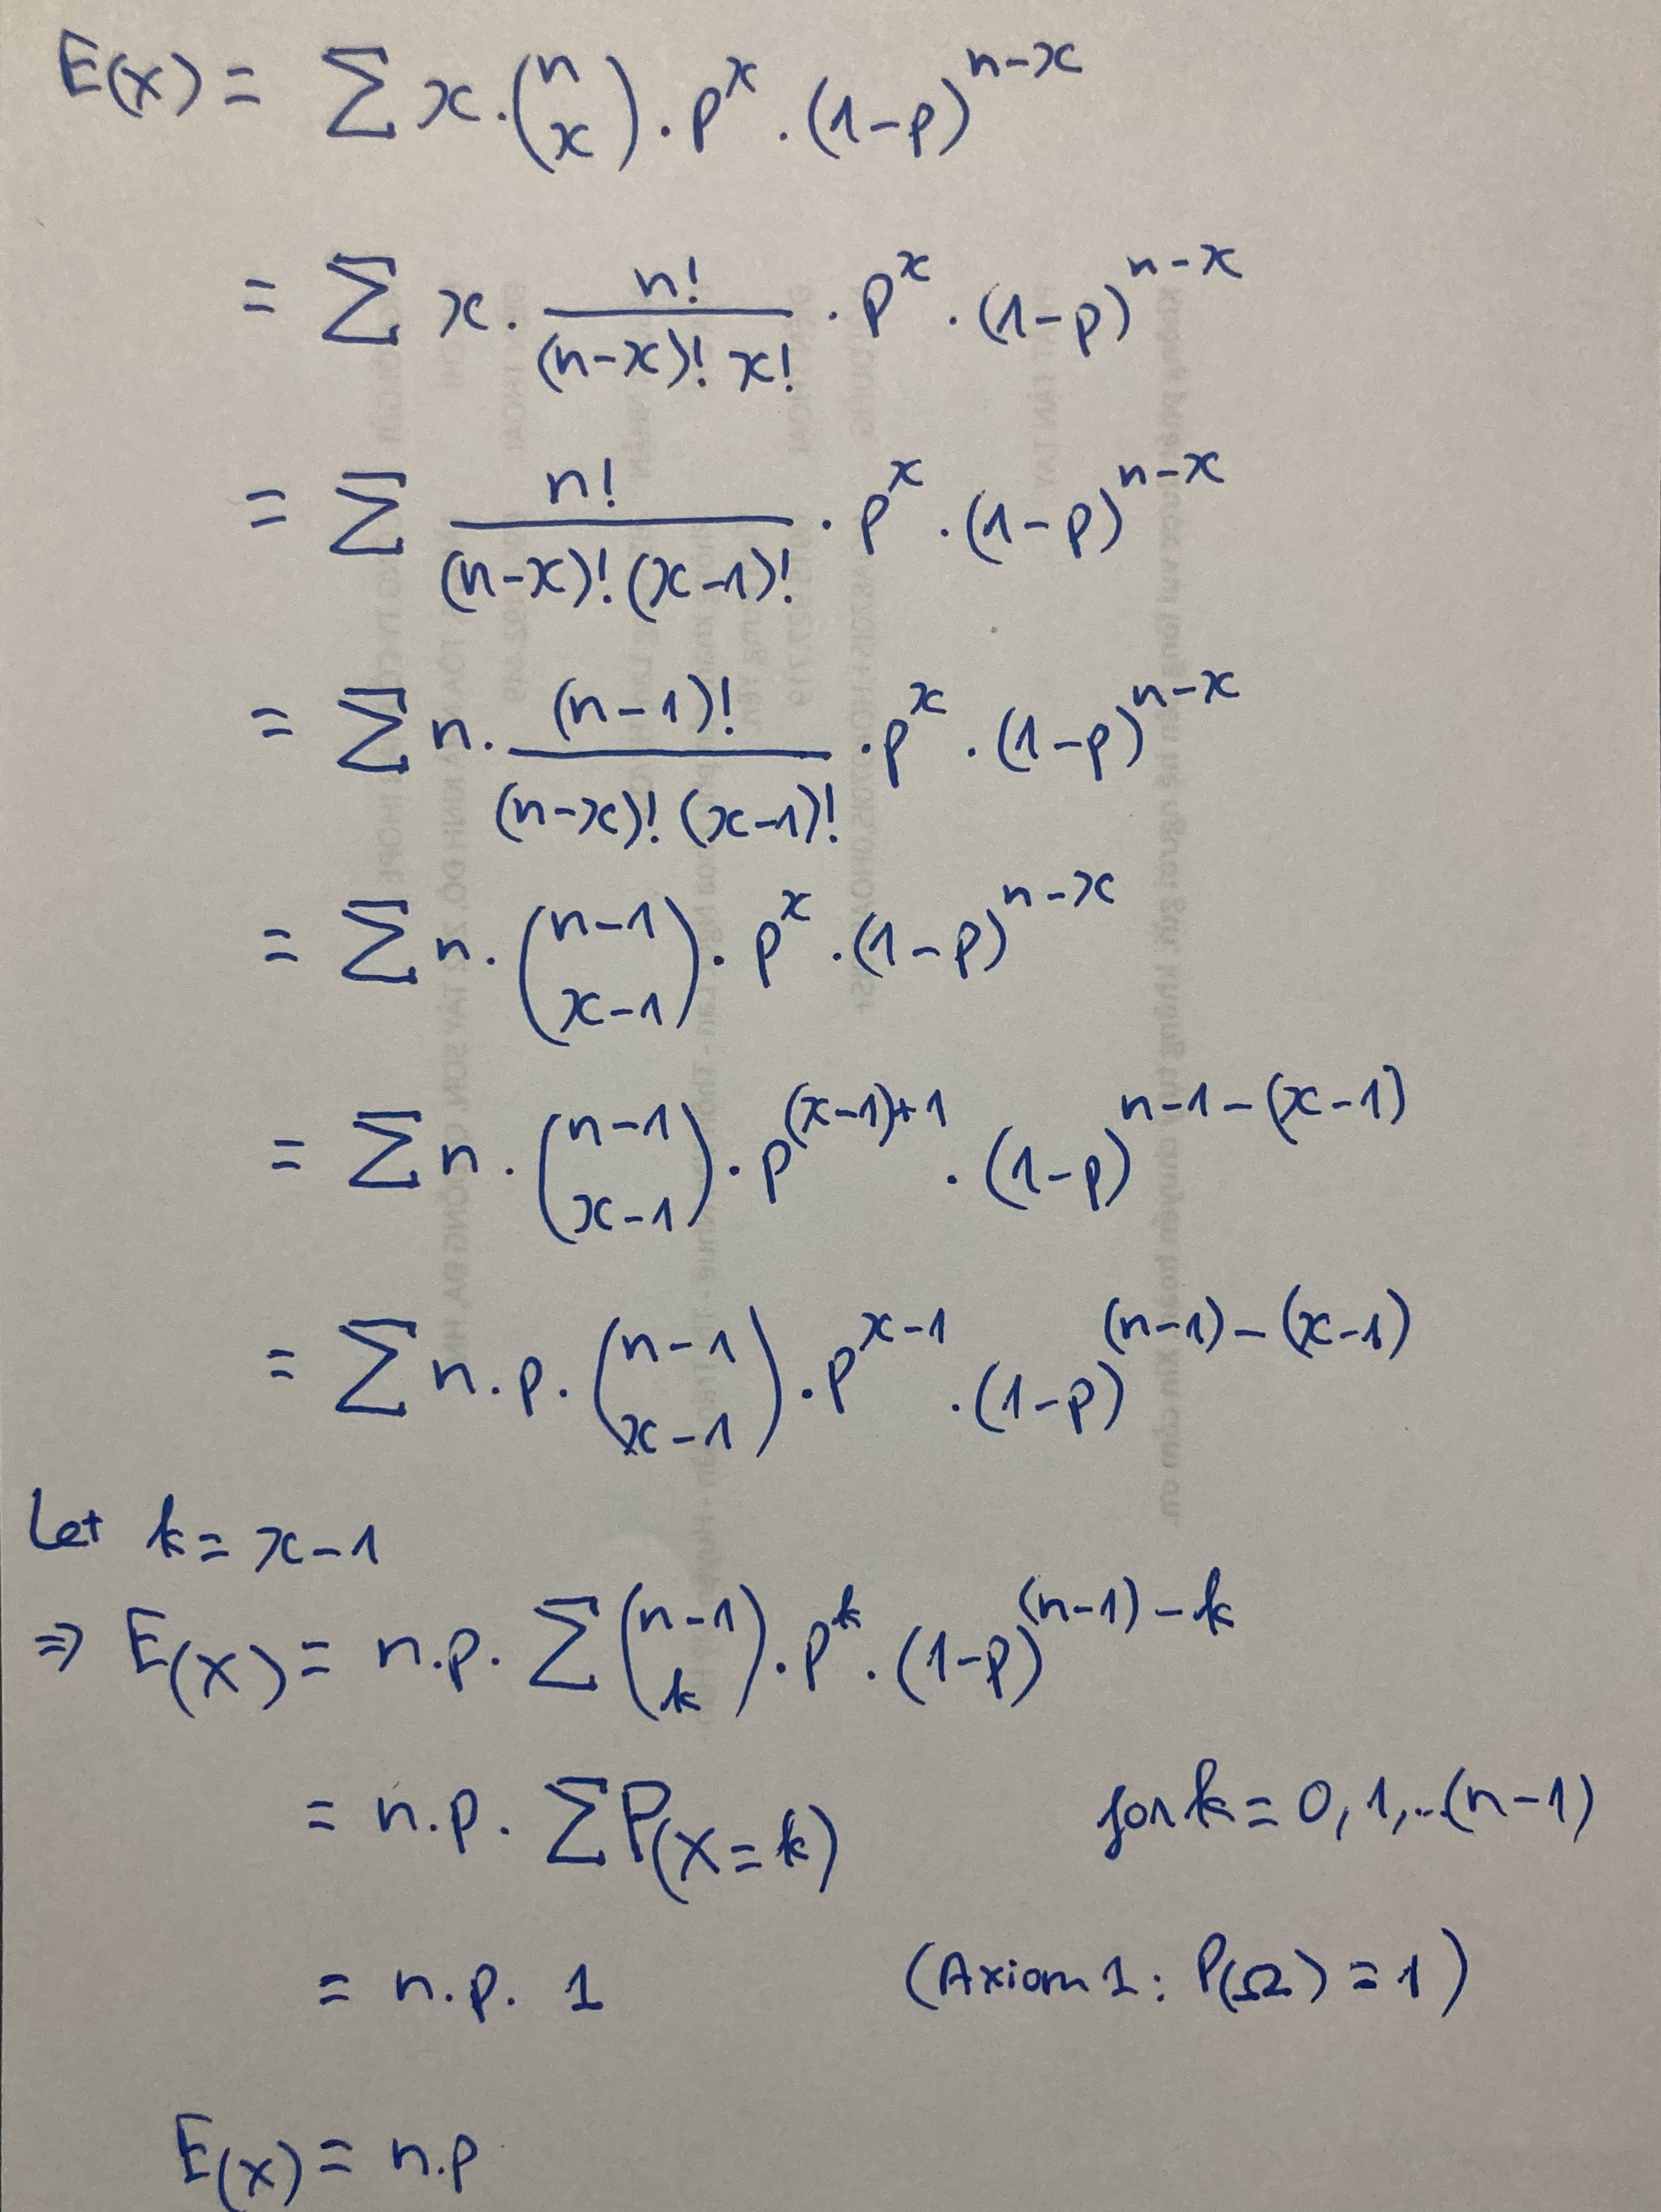 E(X) = ∑ x . (n x) . p^x . (1-p)^(n-x)
= ∑ x . n! / ((n-x)! x!) . p^x . (1-p)^(n-x)
= ∑ n! / ((n-x)! (x-1)!) . p^x . (1-p)^(n-x)
= ∑ n . (n-1)! / ((n-x)! (x-1)!) . p^x . (1-p)^(n-x)
= ∑ n . (n-1 x-1) . p^x . (1-p)^(n-x)
= ∑ n . (n-1 x-1) . p^((x-1)+1) . (1-p)^(n-1-(x-1))
= ∑ n . p . (n-1 x-1) . p^(x-1) . (1-p)^((n-1)-(x-1))
Let k = x-1
⇒ E(X) = n.p. ∑ (n-1 k) . p^k . (1-p)^((n-1)-k)
= n.p. ∑ P(X=k) for k = 0, 1, ..(n-1)
= n.p. 1 (Axiom 1: P(Ω) = 1)
E(X) = n.p